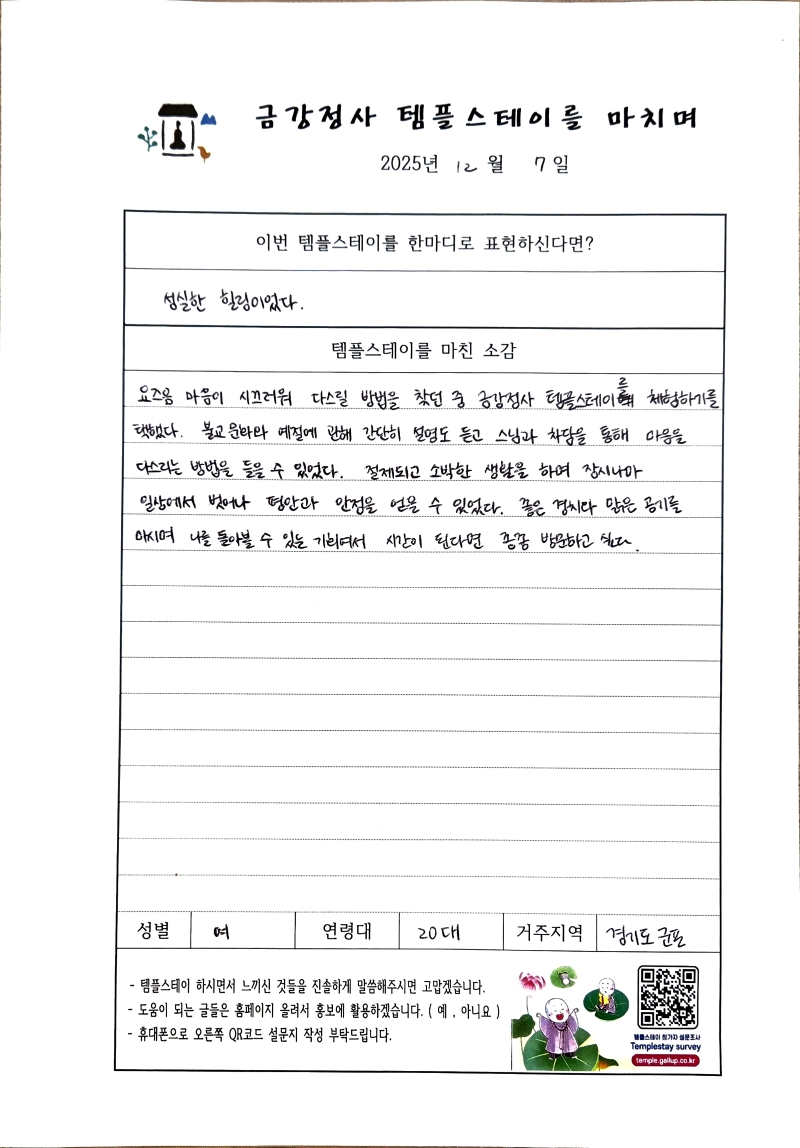 금강정사 템플스테이를 마치며
2025년 12 월 7 일
이번 템플스테이를 한마디로 표현하신다면?
성실한 힐링이었다.
템플스테이를 마친 소감
요즈음 마음이 시끄러워 다스릴 방법을 찾던 중 금강정사 템플스테이를 체험하기를
택했다. 불교문화와 예절에 관해 간단히 설명도 듣고 스님과 차담을 통해 마음을
다스리는 방법을 들을 수 있었다. 절제되고 소박한 생활을 하며 잠시나마
일상에서 벗어나 평안과 안정을 얻을 수 있었다. 좋은 경치와 맑은 공기를
마시며 나를 돌아볼 수 있는 기회여서 시간이 된다면 종종 방문하고 싶다.
성별 여 연령대 20대 거주지역 경기도 군포
- 템플스테이 하시면서 느끼신 것들을 진솔하게 말씀해주시면 고맙겠습니다.
- 도움이 되는 글들은 홈페이지 올려서 홍보에 활용하겠습니다. ( 예 , 아니요 )
- 휴대폰으로 오른쪽 QR코드 설문지 작성 부탁드립니다.
템플스테이 참가자 설문조사
Templestay survey
temple.gallup.co.kr